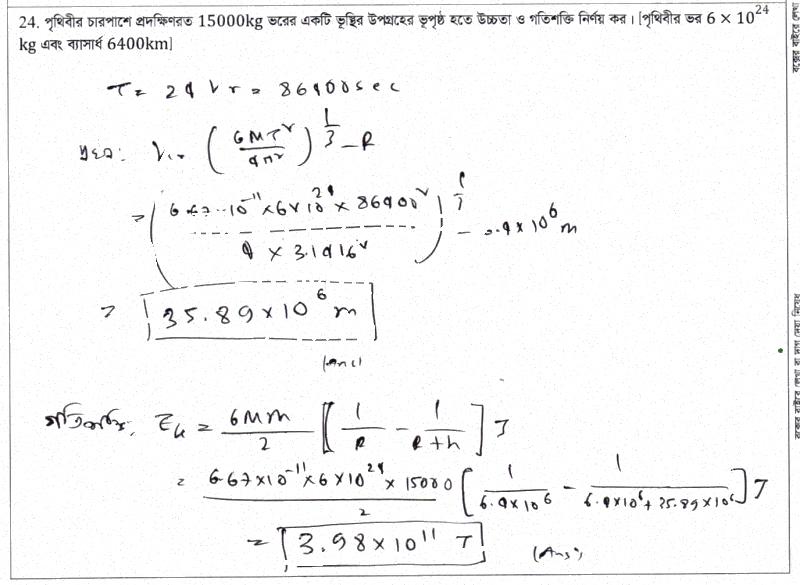 24. পৃথিবীর চারপাশে প্রদক্ষিণরত 15000kg ভরের একটি ভূস্থির উপগ্রহের ভূপৃষ্ঠ হতে উচ্চতা ও গতিশক্তি নির্ণয় কর। [পৃথিবীর ভর 6 × 10^24
kg এবং ব্যাসার্ধ 6400km]
T = 24 hr = 86400sec
h = (GMT²/4π²)^1/3 - R
= (6.67×10^-11 ×6×10^24 × 86400² / 4 × 3.1416²)^1/3 - 6.4×10^6 m
= 35.89×10^6 m
(Ans)
গতিশক্তি, E_k = GMm/2 [1/R - 1/R+h] J
= 6.67×10^-11×6×10^24×15000/2 [1/6.4×10^6 - 1/6.4×10^6+35.89×10^6] J
= 3.98×10^11 J (Ans)